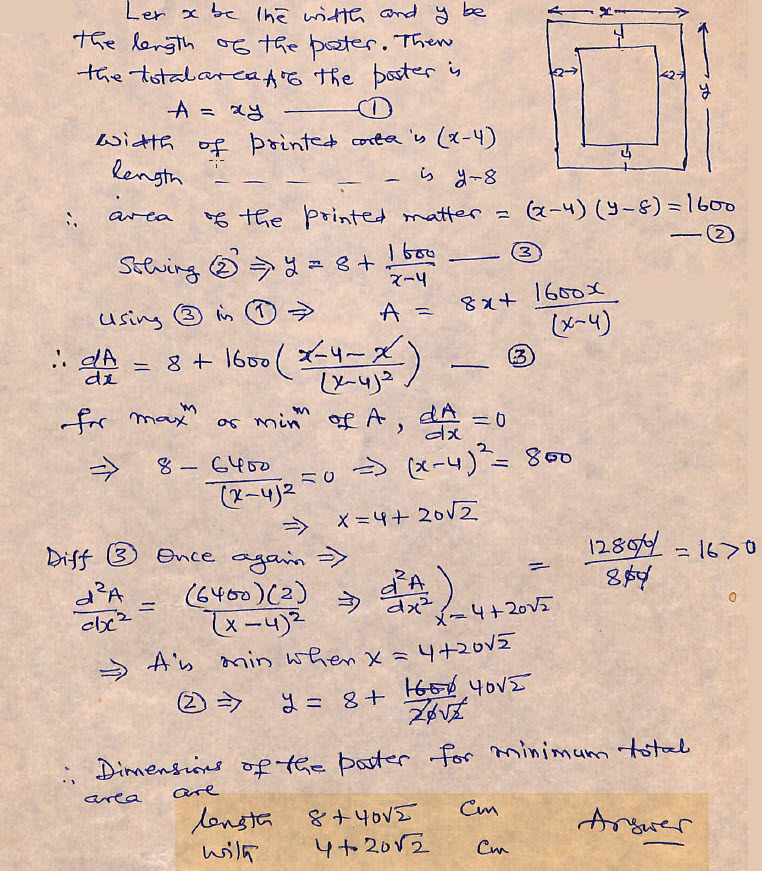 Let x be the width and y be
the length of the poster. Then
the total area A of the poster is
A = xy ——— ①
width of printed area is (x-4)
length – – – – – is y-8
∴ area of the printed matter = (x-4)(y-8) = 1600
— ②
Solving ② ⇒ y = 8 + 1600/(x-4) — ③
using ③ in ① ⇒ A = 8x + 1600x/(x-4)
∴ dA/dx = 8 + 1600 ( (x-4-x)/(x-4)² ) — ③
for maxᵐ or minᵐ of A, dA/dx = 0
⇒ 8 - 6400/(x-4)² = 0 ⇒ (x-4)² = 800
⇒ x = 4 + 20√2
Diff ③ Once again ⇒
d²A/dx² = (6400)(2)/(x-4)² ⇒ d²A/dx² ) x = 4+20√2 = 12800/800 = 16 > 0
⇒ A is min when x = 4+20√2
② ⇒ y = 8 + 1600/20√2 40√2
∴ Dimensions of the poster for minimum total
area are
length 8 + 40√2 cm Answer
width 4 + 20√2 cm
x
y
4
2
2
4